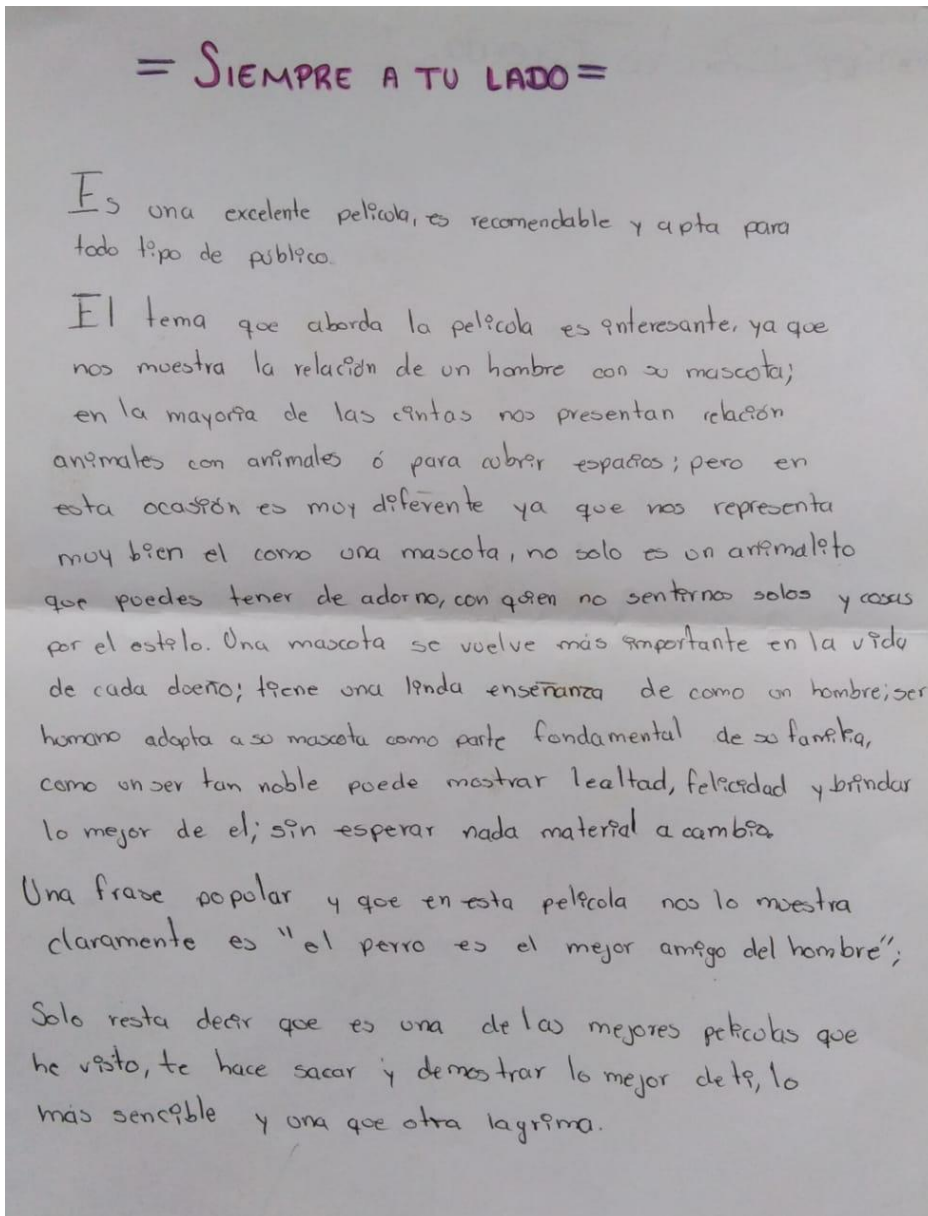 = SIEMPRE A TU LADO =
Es una excelente película, es recomendable y apta para
todo tipo de público.
El tema que aborda la película es interesante, ya que
nos muestra la relación de un hombre con su mascota;
en la mayoría de las cintas nos presentan relación
animales con animales ó para cubrir espacios; pero en
esta ocasión es muy diferente ya que nos representa
muy bien el como una mascota, no solo es un animalito
que puedes tener de adorno, con quien no sentirnos solos y cosas
por el estilo. Una mascota se vuelve más importante en la vida
de cada dueño; tiene una linda enseñanza de como un hombre; ser
humano adopta a su mascota como parte fundamental de su familia,
como un ser tan noble puede mostrar lealtad, felicidad y brindar
lo mejor de el; sin esperar nada material a cambio.
Una frase popular y que en esta película nos lo muestra
claramente es "el perro es el mejor amigo del hombre";
Solo resta decir que es una de las mejores películas que
he visto, te hace sacar y demostrar lo mejor de ti, lo
más sencible y una que otra lagrima.